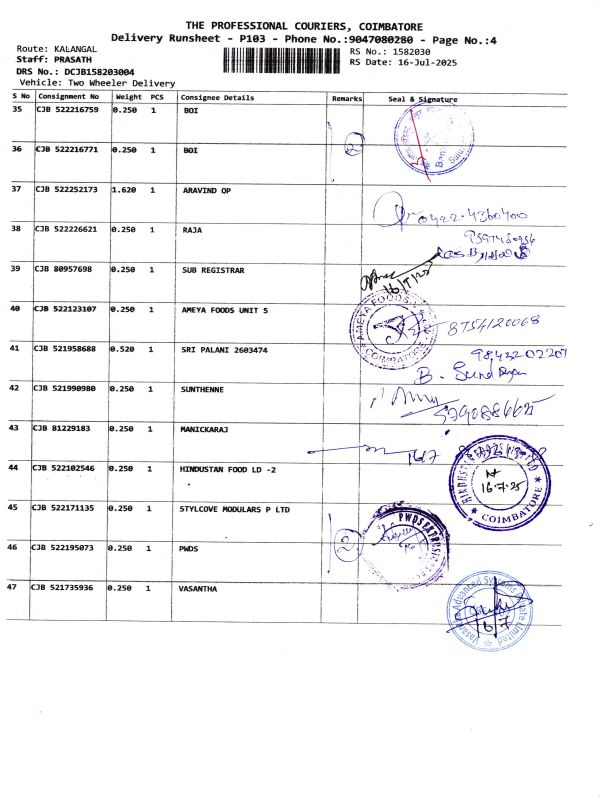 THE PROFESSIONAL COURIERS, COIMBATORE
Delivery Runsheet - P103 - Phone No.:9047080280 - Page No.:4
Route: KALANGAL
RS No.: 1582030
Staff: PRASATH
RS Date: 16-Jul-2025
DRS No.: DCJB158203004
Vehicle: Two Wheeler Delivery
S No Consignment No Weight PCS Consignee Details Remarks Seal & Signature
35 CJB 522216759 0.250 1 BOI
36 CJB 522216771 0.250 1 BOI 2
37 CJB 522252173 1.620 1 ARAVIND OP
0422-4360400
38 CJB 522226621 0.250 1 RAJA
39 CJB 80957698 0.250 1 SUB REGISTRAR
16/7/25
40 CJB 522123107 0.250 1 AMEYA FOODS UNIT 5
AMEYA FOODS COIMBATORE
8754120068
41 CJB 521958688 0.520 1 SRI PALANI 2603474
B.
42 CJB 521990980 0.250 1 SUNTHENNE
43 CJB 81229183 0.250 1 MANICKARAJ
16/7
44 CJB 522102546 0.250 1 HINDUSTAN FOOD LD -2
16.7.25
COIMBATORE
45 CJB 522171135 0.250 1 STYLCOVE MODULARS P LTD
46 CJB 522195073 0.250 1 PWDS 2
PWDS EXTRUSION
47 CJB 521735936 0.250 1 VASANTHA
Vasantha Advanced Systems Private Limited
16/7